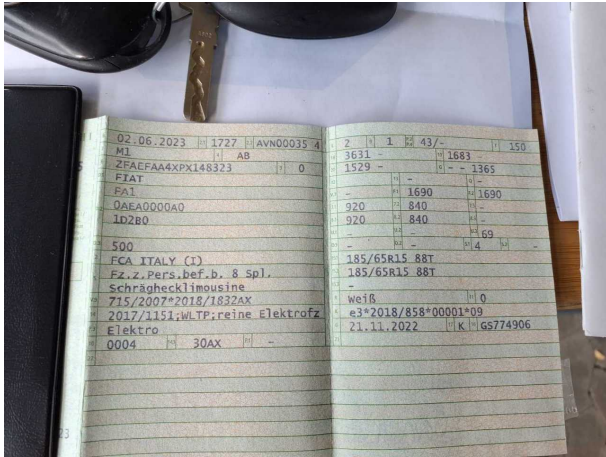 02.06.2023 1727 AVN00035 4
M1 AB
ZFAEFAA4XPX148323 0
FIAT
FA1
0AEA0000A0
1D2B0
500
FCA ITALY (I)
Fz.z.Pers.bef.b. 8 Spl.
Schräghecklimousine
715/2007*2018/1832AX
2017/1151;WLTP;reine Elektrofz
Elektro
0004 30AX -
2 1 43/- 150
3631 - 1683 -
1529 - - - 1365
- -
- 1690 - 1690
920 840 -
920 840 -
- - 69
- - 4 -
185/65R15 88T
185/65R15 88T
-
Weiß 0
e3*2018/858*00001*09
21.11.2022 K GS774906
23